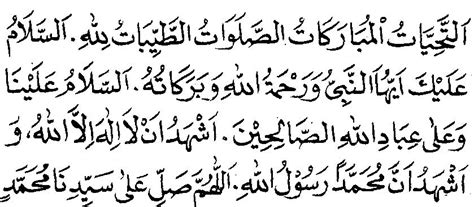 اَلتَّحِيَّاتُ الْمُبَارَكَاتُ الصَّلَوَاتُ الطَّيِّبَاتُ لِلّٰهِ. اَلسَّلَامُ
عَلَيْكَ اَيُّهَا النَّبِيُّ وَرَحْمَةُ اللهِ وَبَرَكَاتُهُ. اَلسَّلَامُ عَلَيْنَا
وَعَلَى عِبَادِ اللهِ الصَّالِحِيْنَ. اَشْهَدُ اَنْ لَا اِلٰهَ اِلَّا اللهُ، وَ
اَشْهَدُ اَنَّ مُحَمَّدًا رَسُوْلُ اللهِ. اَللّٰهُمَّ صَلِّ عَلَى سَيِّدِنَا مُحَمَّدٍ